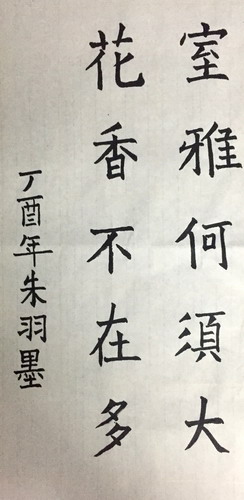 室雅何須大
花香不在多
丁酉年朱羽墨